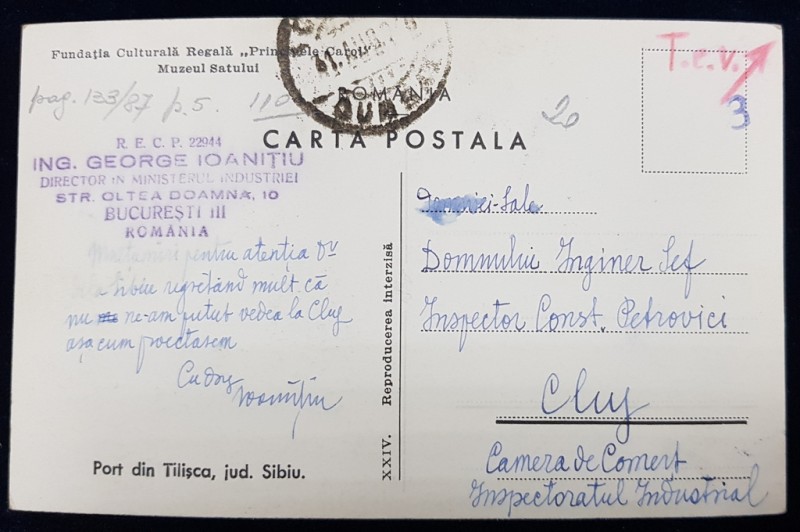 Fundația Culturală Regală „Principele Carol”
Muzeul Satului
pag. 133/87 p. 5. 110
ROMANIA
20
T.e.v.
3
CARTA POSTALA
R. E. C. P. 22944
ING. GEORGE IOANIȚIU
DIRECTOR IN MINISTERUL INDUSTRIEI
STR. OLTEA DOAMNA, 10
BUCUREȘTI III
ROMANIA
Mulțumiri pentru atenția Dv
la Sibiu regretând mult că
nu ne-am putut vedea la Cluj
așa cum proectasem
Cu drag
Ioanițiu
Port din Tilișca, jud. Sibiu.
XXIV. Reproducerea interzisă
Domniei-Sale
Domnului Inginer Șef
Inspector Const. Petrovici
Cluj
Camera de Comerț
Inspectoratul Industrial